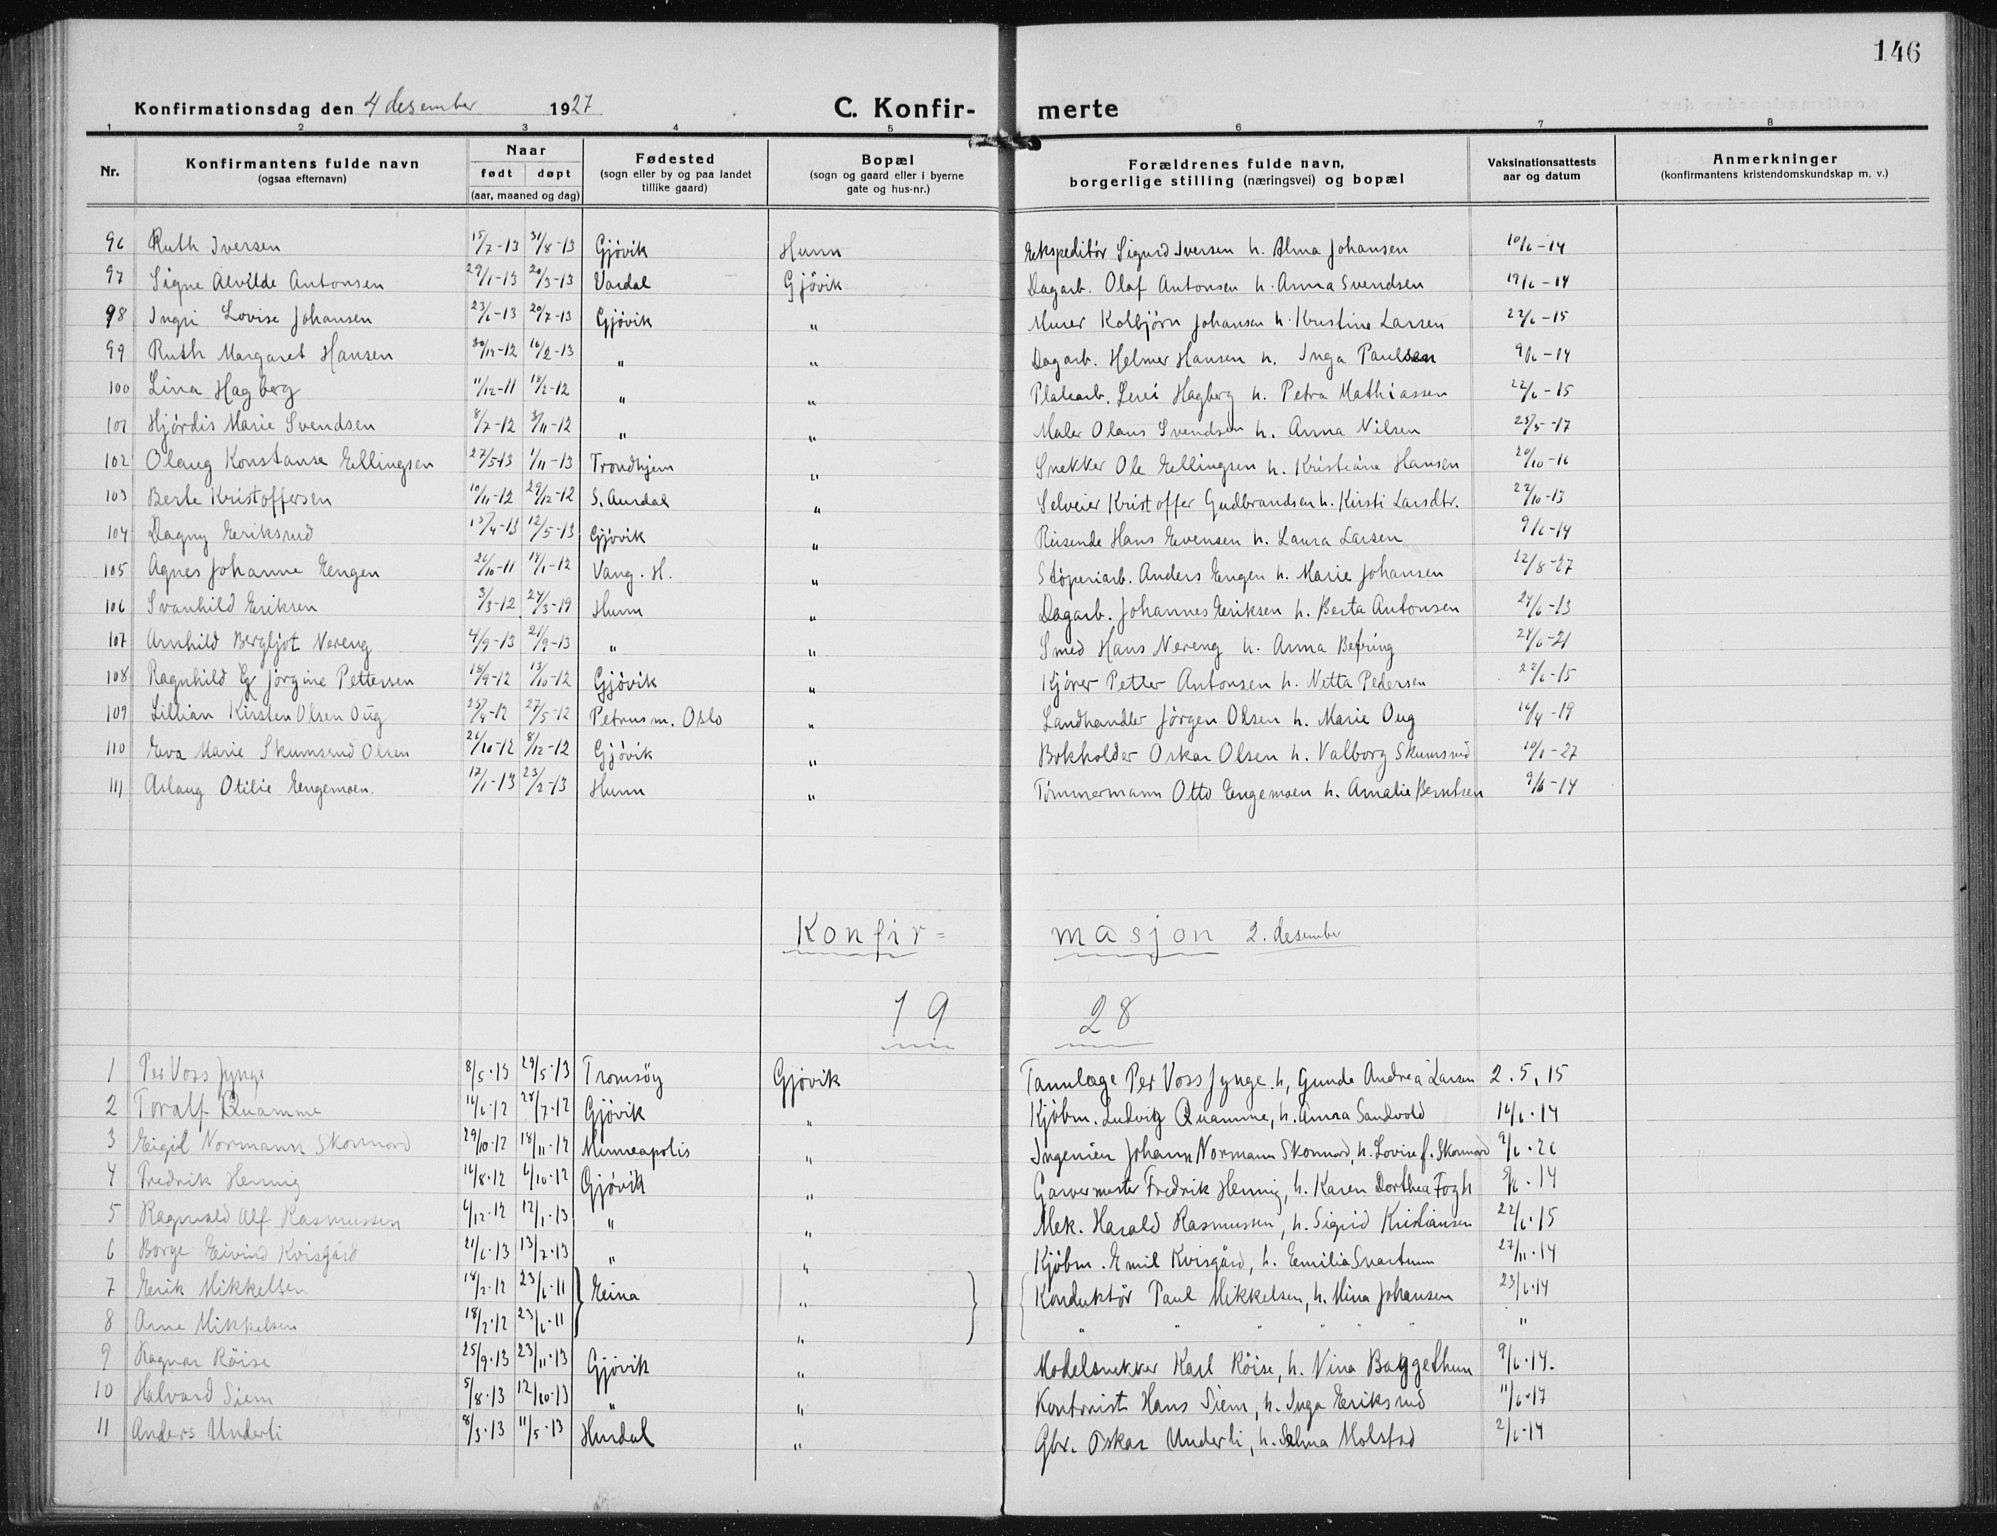 146
Konfirmationsdag den 4 desember 1927 C. Konfir- merte
1 2 3 4 5 6 7 8
Nr. Konfirmantens fulde navn (ogsaa efternavn) Naar født døpt (aar, maaned og dag) Fødested (sogn eller by og paa landet tillike gaard) Bopæl (sogn og gaard eller i byerne gate og hus-nr.) Forældrenes fulde navn, borgerlige stilling (næringsvei) og bopæl Vaksinationsattests aar og datum Anmerkninger (konfirmantens kristendomskundskap m. v.)
96 Ruth Iversen 15/7-13 31/8-13 Gjøvik Hunn Ekspeditør Sigurd Iversen h. Alma Johansen 10/6-14
97 Signe Alvilde Antonsen 29/1-13 20/3-13 Vardal Gjøvik Dagarb. Olaf Antonsen h. Anna Svendsen 19/6-14
98 Ingri Lovise Johansen 23/6-13 20/7-13 Gjøvik " Murer Kolbjørn Johansen h. Kristine Larsen 22/6-15
99 Ruth Margaret Hansen 30/12-12 16/2-13 " " Dagarb. Helmer Hansen h. Inga Paulsen 9/6-14
100 Lina Hagberg 11/12-11 18/2-12 " " Platearb. Hagberg h. Petra Mathiassen 22/6-15
101 Hjørdis Marie Svendsen 8/7-12 3/11-12 " " Maler Olaus Svendsen h. Anna Nilsen 25/5-17
102 Olaug Konstanse Ellingsen 27/5-13 1/11-13 Trondhjem " Snekker Ole Ellingsen h. Kristiane Hansen 20/10-16
103 Berte Kristoffersen 10/11-12 29/12-12 S. Aurdal " Selveier Kristoffer Gudbrandsen h. Kirsti Larsdtr. 22/10-13
104 Dagny Eriksrud 15/4-13 12/5-13 Gjøvik " Reisende Hans Evensen h. Laura Larsen 9/6-14
105 Agnes Johanne Engen 26/10-11 14/1-12 Vang. H. " Støperiarb. Anders Engen h. Marie Johansen 12/8-27
106 Svanhild Eriksen 3/3-12 24/3-19 Hunn " Dagarb. Johannes Eriksen h. Berta Antonsen 24/6-13
107 Arnhild Bergljot Nereng 4/9-13 21/9-13 " " Smed Hans Nereng h. Anna Befring 24/6-21
108 Ragnhild Jørgine Pettersen 18/9-12 13/10-12 Gjøvik " Kjører Petter Antonsen h. Netta Pedersen 22/6-15
109 Lillian Kirsten Olsen Oug 25/4-12 27/5-12 Petrus m. Oslo " Landhandler Jørgen Olsen h. Marie Oug 16/4-19
110 Eva Marie Skumsrud Olsen 26/10-12 8/12-12 Gjøvik " Bokholder Oskar Olsen h. Valborg Skumsrud 10/1-27
111 Aslaug Otilie Engemoen. 17/1-13 23/2-13 Hunn " Tømmermann Otto Engemoen h. Amalie Berntsen 9/6-14
Konfir= masjon 2. desember
19 28
1 Per Voss Jynge 8/5.13 29/5.13 Tromsøy Gjøvik Tannlæge Per Voss Jynge h, Gunda Andrea Larsen 2.5,15
2 Toralf Quamme 16/6.12 28/7.12 Gjøvik " Kjøbm. Ludvig Quamme, h. Anna Sandvold 16/6.14
3 Eigil Normann Skonnord 29/10.12 18/11.12 Minneapolis " Ingeniør Johann Normann Skonnord, h. Lovise f. Skonnord 9/6.26
4 Fredrik Hennig 16/8.12 6/10.12 Gjøvik " Garvermester Fredrik Hennig, h. Karen Dorthea Fogh 9/6.14
5 Ragnvald Alf Rasmussen 6/12.12 12/1.13 " " Mek. Harald Rasmussen, h. Sigrid Kristiansen 22/6.15
6 Borge Eivind Kvisgård 21/6.13 13/7.13 " " Kjøbm. Emil Kvisgård, h. Emilia Svartuum 27/11.14
7 Erik Mikkelsen 18/2.12 23/6.11 } Eina " } { Konduktør Paul Mikkelsen, h. Mina Johansen 23/6.14
8 Arne Mikkelsen 18/2.12 23/6.11 " " " " " " " "
9 Ragnar Röise 25/9.13 23/11.13 Gjøvik " Modelsnekker Karl Röise, h. Nina Baggethun 9/6.14.
10 Halvard Siem 5/8.13 12/10.13 " " Kontorist Hans Siem, h. Inga Eriksrud 11/6.17
11 Anders Underli 8/3.13 11/5.13 Hurdal " Gbr. Oskar Underli, h. Alma Molstad 2/6.14